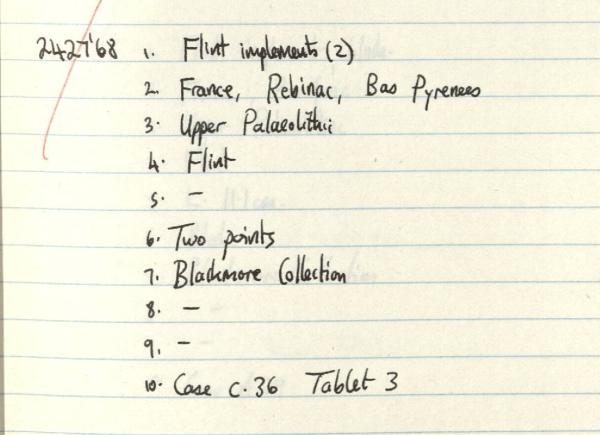 242'68 1. Flint implements (2)
2. France, Rebinac, Bas Pyrenees
3. Upper Palaeolithic
4. Flint
5. –
6. Two points
7. Blackmore Collection
8. –
9. –
10. Case C.36 Tablet 3